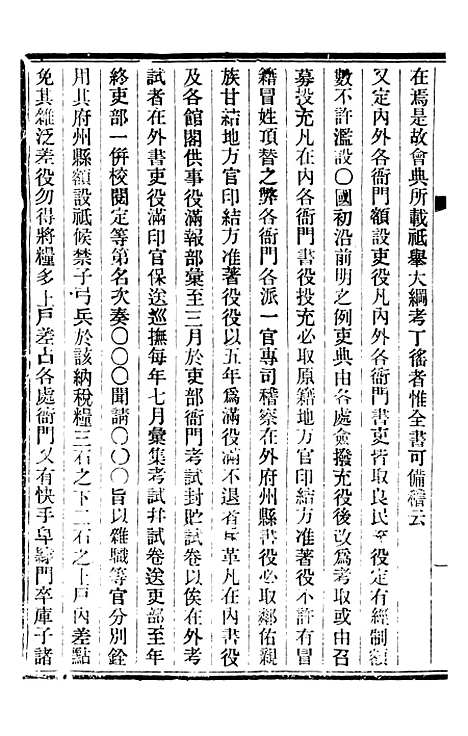 在焉是故會典所載祗舉大綱考丁徭者惟全書可備稽云
又定內外各衙門額設吏役凡內外各衙門書吏皆取良民充役定有經制額
數不許濫設〇國初沿前明之例吏典由各處僉撥充役後改爲考取或由召
募投充凡在內各衙門書役投充必取原籍地方官印結方准著役不許有冒
籍冒姓頂替之弊各衙門各派一官專司稽察在外府州縣書役必取鄰佑親
族甘結地方官印結方准著役役以五年爲滿役滿不退者 革凡在內書役
及各館閣供事役滿報部彙至三月於吏部衙門考試封貯試卷以俟在外考
試者在外書吏役滿印官保送巡撫每年七月彙集考試幷試卷送吏部至年
終吏部一併校閱定等第名次奏〇〇〇聞請〇〇〇旨以雜職等官分別銓
用其府州縣額設祗候禁子弓兵於該納稅糧三石之下二石之上戶內差點
免其雜泛差役勿得將糧多上戶差占各處衙門又有快手皁隸門卒庫子諸